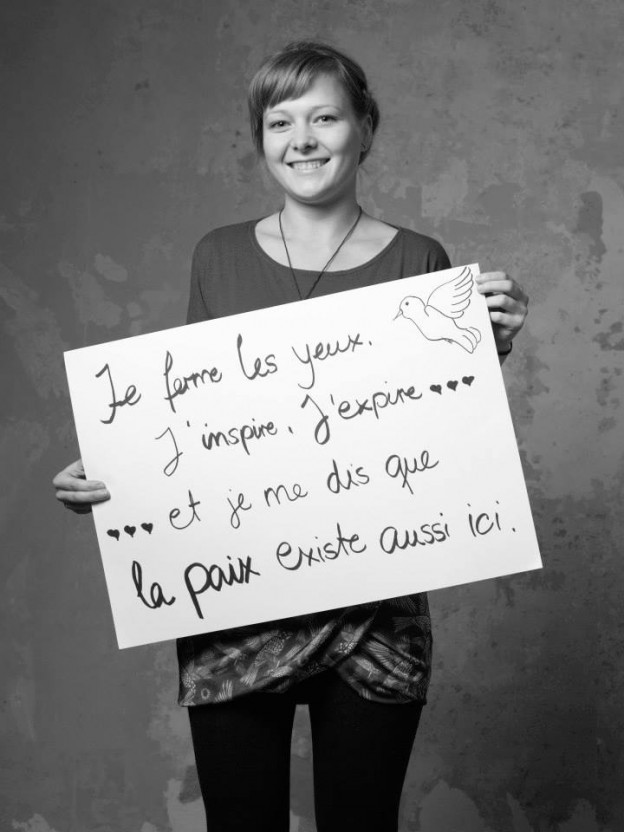 Je ferme les yeux.
J'inspire. J'expire ♥♥♥
♥♥♥ et je me dis que
la paix existe aussi ici.